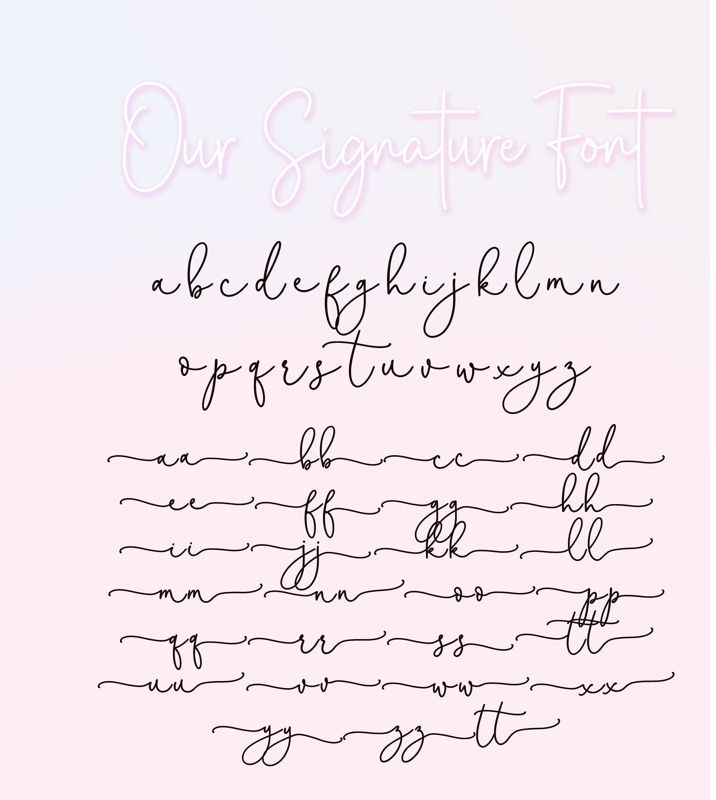 Our Signature Font
a b c d e f g h i j k l m n
o p q r s t u v w x y z
aa bb cc dd
ee ff gg hh
ii jj kk ll
mm nn oo pp
qq rr ss tt
uu vv ww xx
yy zz tt